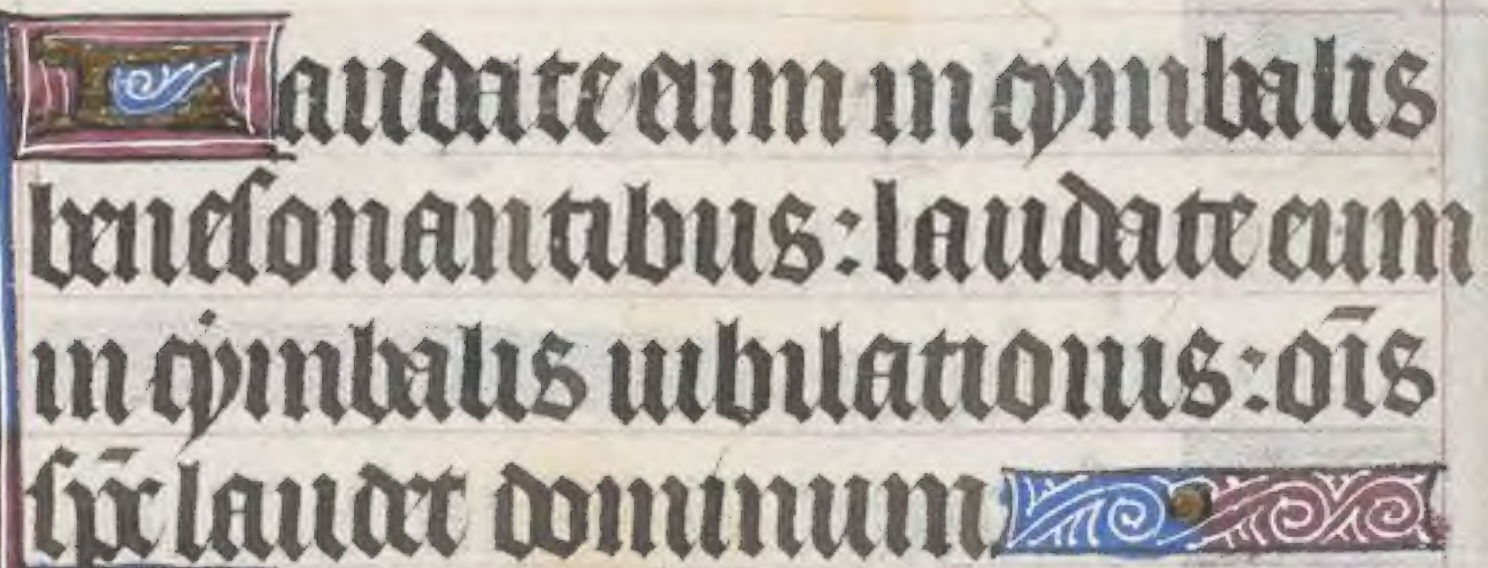 Laudate eum in cymbalis
benesonantibus: laudate eum
in cymbalis iubilationis: oīs
sp̄c laudet dominum